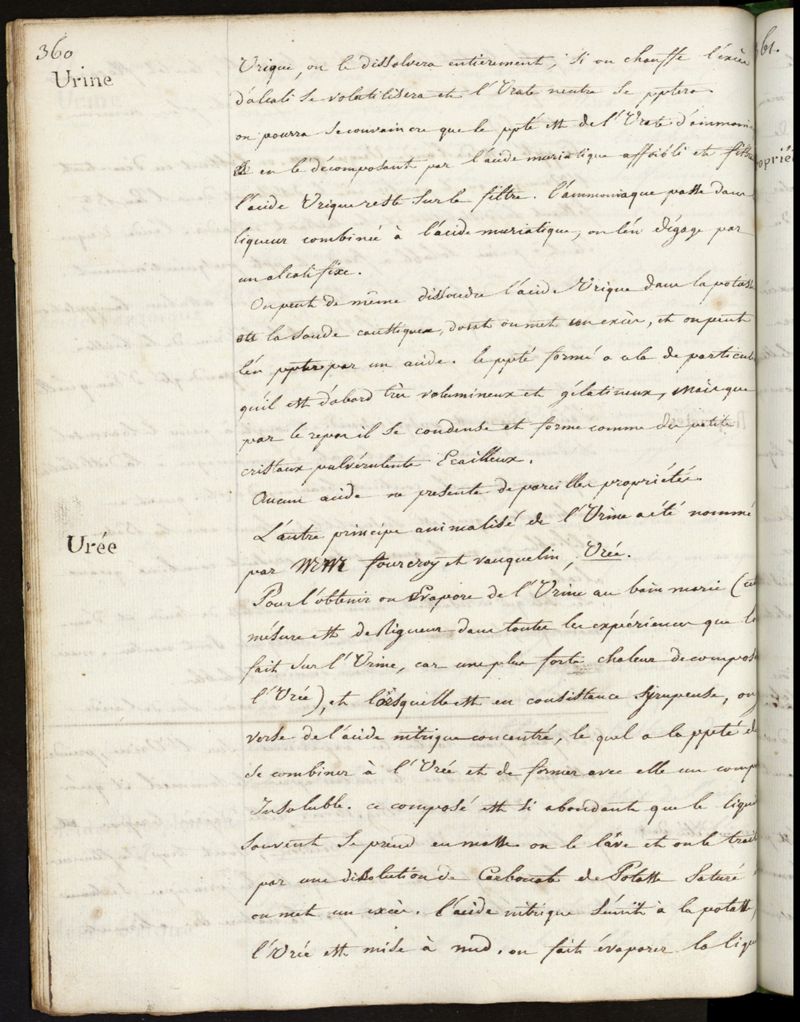 360
Urine
Urique, on le dissolvera entierement, si on chauffe l'éxèx
d'alcali se volatilisera et l'Urate neutre se pptera
on pourra se convaincre que le ppté est de l'Urate d'ammoni
en le décomposant par l'acide muriatique affoibli et filtra
l'acide Urique reste sur le filtre. l'ammoniaque passe dans
liqueur combinée à l'acide muriatique, on l'en dégage par
un alcali fixe.
On peut de même dissoudre l'acide Urique dans la potasse
et la soude caustiques, dont on met un excès, et on peut
l'en ppter par un acide. le ppté formé a cela de particul
qu'il est d'abord très volumineux et gélatineux, mais que
par le repos il se condense et forme comme des petits
cristaux pulvérulents Ecailleux.
Aucun acide ne presente de pareilles propriétés
L'autre principe animalisé de l'Urine a été nommé
Urée
par MM fourcroy et vauquelin, Urée.
Pour l'obtenir on Evapore de l'Urine au bain marie (ce
mésure est de Rigueur dans toutes les expériences que l'o
fait sur l'Urine, car une plus forte chaleur decompose
l'Urée), et lorsqu'elle est en consistance syrupeuse, on
verse de l'acide nitrique concentré, le quel a la ppeté d
se combiner à l'Urée et de former avec elle un comp
Insoluble. ce composé est si abondant que le liqui
souvent se prend en masse on le lave et on le trait
par une dissolution de Carbonate de Potasse Saturé
on met un excès. l'acide nitrique s'unit à la potasse
l'Urée est mise à nud. on fait évaporer la liqu
61.
oprié